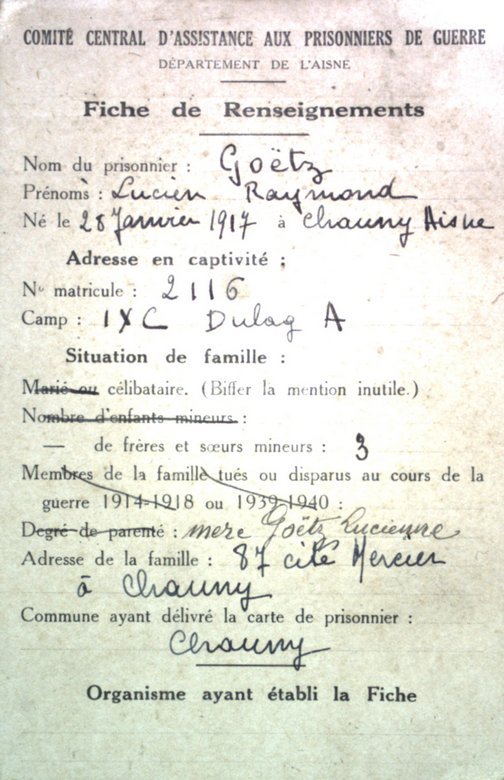 COMITÉ CENTRAL D'ASSISTANCE AUX PRISONNIERS DE GUERRE
DÉPARTEMENT DE L'AISNE
Fiche de Renseignements
Nom du prisonnier : Goëtz
Prénoms : Lucien Raymond
Né le 28 Janvier 1917 à Chauny Aisne
Adresse en captivité :
No matricule : 2116
Camp : IXC Dulag A
Situation de famille :
Marié ou célibataire. (Biffer la mention inutile.)
Nombre d'enfants mineurs :
— de frères et sœurs mineurs : 3
Membres de la famille tués ou disparus au cours de la
guerre 1914-1918 ou 1939-1940 :
Degré de parenté : mere Goëtz Lucienne
Adresse de la famille : 87 cité Mercier
à Chauny
Commune ayant délivré la carte de prisonnier :
Chauny
Organisme ayant établi la Fiche